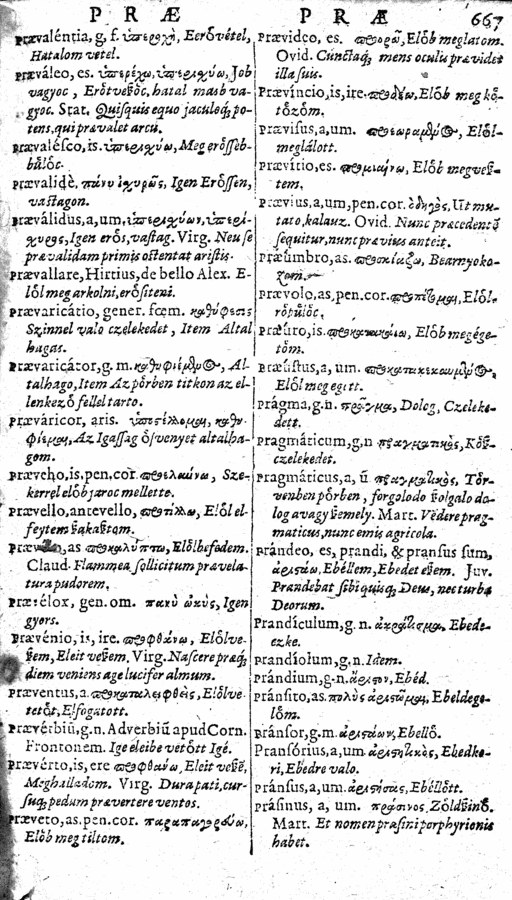 P R Æ
P R Æ
667
Prævaléntia, g, f. ὑπεροχὴ, Eerővétel,
Hatalom vetel.
Præváleo, es. ὑπερέχω, ὑπερισχύω, Job
vagyoc, Erőtveßőc, hatal masb va-
gyoc. Stat. Quisquis equo jaculoq́; po-
tens, qui prævalet arcu.
Prævalésco, is. ὑπερισχύω, Meg erősseb-
bűlőc.
Prævalidè. πάνυ ἰσχυρῶς, Igen Erőssen,
vastagon.
Præválidus, a, um,
Igen erős, vastag. Virg. Neu se
prævalidam primis ostentat aristis.
Prævallare, Hirtius, de bello Alex. E-
lől meg arkolni, erősiteni.
Prævaricátio, gener. fœm. καθύφεσις
Szinnel valo czelekedet, Item Altal
hagas.
Prævaricátor, g. m.  Al-
talhago, Item Az pőrben titkon az el-
lenkező fellel tarto.
Præváricor, aris.
Az Igassag ős venyet altalha-
gom.
Prǽveho, is, pen, cor. προελαύνω, Sze-
kerrel előb jaroc mellette.
Prævello, antevello,  Előlel-
feytem ßakaßtom.
as προκαλύπτω, Előlbefődem.
Claud. Flammea sollicitum prævela-
tura pudorem.
Prævélox, gen. om. πανὺ ὠκὺς, Igen
gyors.
Prævénio, is, ire. προφθάνω, Elől ve-
ßem, Eleit veßem. Virg. Nascere præq́;
diem veniens age lucifer almum.
Præventus, a. προκαταλειφθεὶς, Elől ve-
tetőt, Elfogatott.
Prævérbiũ, g. n. Adverbiũ apud Corn.
Frontonem. Ige eleibe vetőtt Igé.
Prævérto, is, ere προφθάνω, Eleit veßẽ,
Meghalladom. Virg. Dura pati, cur-
suq́; pedum prævertere ventos.
Præveto, as, pen. cor. παραπαγορεύω,
Előb meg tiltom.
Prævideo, es. προορῶ, Előb meglatom.
Ovid. Cunctaq́; mens oculu prævidet
illa suis.
Prævíncio, is, ire. προδέω, Előb meg kő-
tőzőm.
Prævísus, a, um.  Elől-
meglálott.
Prævítio, es. προμιαίνω, Előb megveß-
tem.
Prævius, a, um, pen. cor. ὁδηγὸς, Ut mu-
tato, kalauz. Ovid. Nunc præcedentẽ
sequitur, nunc prævius anteit.
Præúmbro, as. προσκιάζω, Bearnyoko-
zom.
Prævolo, as, pen. cor. προπέτομαι, Elől-
rőpűlőc.
Præúro, is. προκατακαίω, Előb megége-
tőm.
Præústus, a, um.
Elől meg egett.
Prágma, g. n. πρᾶγμα, Dolog, Czeleke-
dett.
Pragmáticum, g, n πραγματικὸς, Kőß-
czelekedet.
Pragmáticus, a, ũ πραγματικὸς, Tőr-
venben pőrben, forgolodo ßolgalo do-
log avagy ßemely. Mart. Vēdere prag-
maticus, nunc emis agricola.
Prándeo, es, prandi, & pransus sum,
ἀριστάω, Ebéllem, Ebedet eßem. Juv.
Prandebat sibi quisq; Deus, nec turba
Deorum.
Prandículum, g. n.  Ebede-
ezke.
Prandiolum, g. n. Idem.
Prándium, g-n. ἄριστον, Ebéd.
Pránsito, as. πολὺς ἀριστῶμαι, Ebeldege-
lőm.
Pránsor, g. m. ἀριστάων, Ebellő.
Pransórius, a, um ἀριστητικὸς, Ebedke-
ri, Ebedre valo.
Pránsus, a, um. ἀριστήσας, Ebéllőtt.
Prásinus, a, um. πράσινος, Zőldßinő.
Mart. Et nomen præsini porphyrionis
habet.